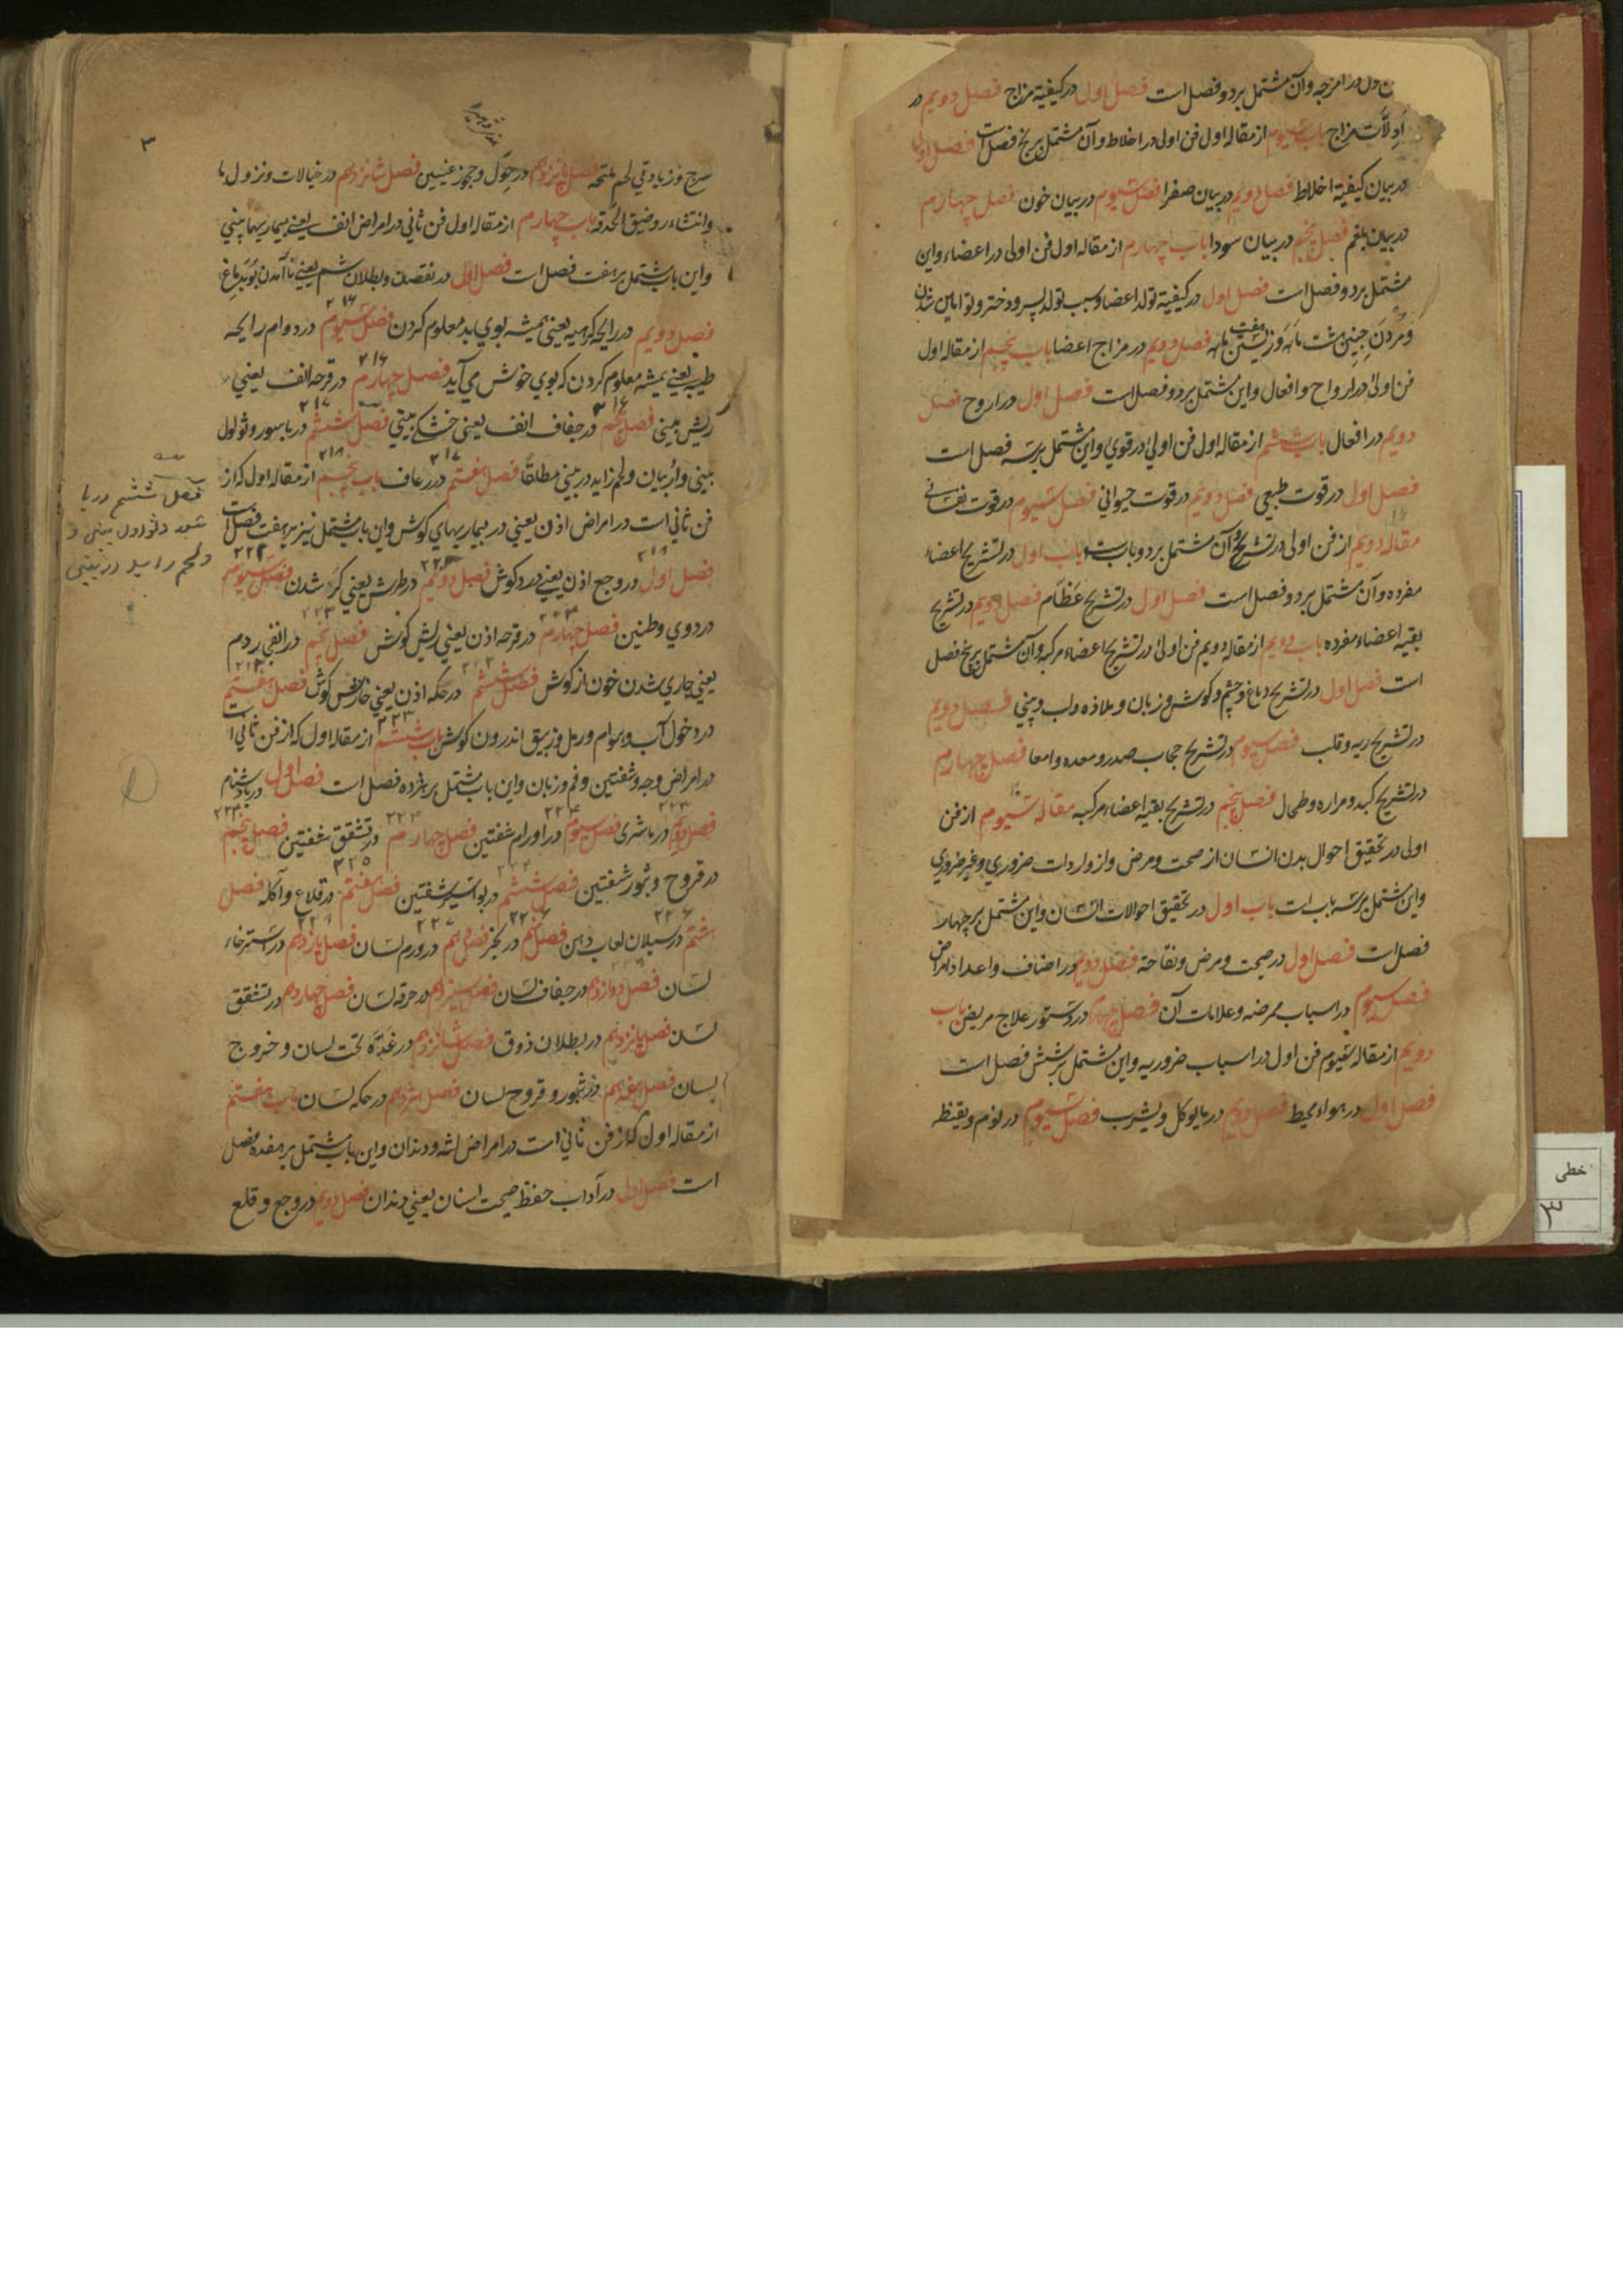 در امزجه وآن مشتمل بردو فصل است فصل اول در کیفیة مزاج فصل دویم در
ادلات مزاج باب سیوم از مقاله اول فن اولی در اخلاط وآن مشتمل بر پنج فصل است فصل اول
در بیان کیفیة اخلاط فصل دویم در بیان صفرا فصل سیوم در بیان خون فصل چهارم
در بیان بلغم فصل پنجم در بیان سودا باب چهارم از مقاله اول فن اولی در اعضاء واین
مشتمل بردو فصل است فصل اول در کیفیة تولد اعضا وسبب تولد پسر ودختر وتوامین شدن
ومردن جنین هشت ماهه وزیستن هفت ماهه فصل دویم در مزاج اعضا باب پنجم از مقاله اول
فن اولی در ارواح وافعال واین مشتمل بردو فصل است فصل اول در ارواح فصل
دویم در افعال باب ششم از مقاله اول فن اولی در قوی واین مشتمل برسه فصل است
فصل اول در قوت طبیعی فصل دویم در قوت حیوانی فصل سیوم در قوت نفسانی
مقاله دویم از فن اولی در تشریح وآن مشتمل بردو باب است باب اول در تشریح اعضاء
مفرده وآن مشتمل بردو فصل است فصل اول در تشریح عظام فصل دویم در تشریح
بقیه اعضاء مفرده باب دویم از مقاله دویم فن اولی در تشریح اعضاء مرکبه وآن مشتمل بر پنج فصل
است فصل اول در تشریح دماغ وچشم وکوش وزبان وملاذه ولب وبینی فصل دویم
در تشریح ریه وقلب فصل سیوم در تشریح حجاب صدر ومعده وامعا فصل چهارم
در تشریح کبد ومراره وطحال فصل پنجم در تشریح بقیه اعضاء مرکبه مقاله سیوم از فن
اولی در تحقیق احوال بدن انسان از صحت ومرض واز واردات ضروری وغیر ضروری
واین مشتمل برسه باب است باب اول در تحقیق احوالات انسان واین مشتمل برچهار
فصل است فصل اول در صحت ومرض ونقاحته فصل دویم در اصناف واعداد امراض
فصل سیوم در اسباب ممرضه وعلامات آن فصل چهارم در دستور علاج مریض باب
دویم از مقاله سیوم فن اول در اسباب ضروریه واین مشتمل برشش فصل است
فصل اول در هواء محیط فصل دویم در مایوکل ویشرب فصل سیوم در نوم ویقظه
خطی
٣
٣
فصل پانزدهم در حول وجحوز عینین فصل شانزدهم در خیالات ونزول ما
وانتشاء وضیق الحدقه باب چهارم از مقاله اول فن ثانی در امراض انف یعنی بیماریهای بینی
واین باب مشتمل بر هفت فصل است فصل اول در نقصان وبطلان شم یعنی ناآمدن بوی بدماغ
فصل دویم در رایحه کریهه یعنی همیشه بوی بد معلوم کردن فصل سیوم در دوام رایحه
طیبه یعنی همیشه معلوم کردن که بوی خوش می آید فصل چهارم در قرحه انف یعنی
ریش بینی فصل پنجم در جفاف انف یعنی خشکی بینی فصل ششم در باسور وثولول
بینی واربیان ولحم زاید در بینی مطلقا فصل هفتم در رعاف باب پنجم از مقاله اول که از
فن ثانی است در امراض اذن یعنی در بیماریهای کوش واین باب مشتمل نیز بر هفت فصل است
فصل اول در وجع اذن یعنی درد کوش فصل دویم در طرش یعنی کر شدن فصل سیوم
در دوی وطنین فصل چهارم در قرحه اذن یعنی ریش کوش فصل پنجم در انفجار دم
یعنی جاری شدن خون از کوش فصل ششم در حکه اذن یعنی خارش کوش فصل هفتم
در دخول آب وهوام ورمل وزیبق اندرون کوش باب ششم از مقاله اول که از فن ثانی است
در امراض وجه وشفتین وفم وزبان واین باب مشتمل بر هژده فصل است فصل اول در بادشنام
فصل دویم در باشری فصل سیوم در اورام شفتین فصل چهارم در تشقق شفتین فصل پنجم
در قروح وبثور شفتین فصل ششم در بواسیر شفتین فصل هفتم در قلاع وآکله فصل
هشتم در سیلان لعاب دهن فصل نهم در بخر فصل دهم در ورم لسان فصل یازدهم در استرخاء
لسان فصل دوازدهم در جفاف لسان فصل سیزدهم در حرقه لسان فصل چهاردهم در تشقق
لسان فصل پانزدهم در بطلان ذوق فصل شانزدهم در غده تحت لسان وخروج
لسان فصل هفدهم در بثور وقروح لسان فصل هژدهم در حکه لسان باب هفتم
از مقاله اول که از فن ثانی است در امراض لثه ودندان واین باب مشتمل بر هفده فصل
است فصل اول در آداب حفظ صحت اسنان یعنی دندان فصل دویم در وجع وقلع
فصل ششم در با
سور وثولول بینی و
ولحم زاید در بینی